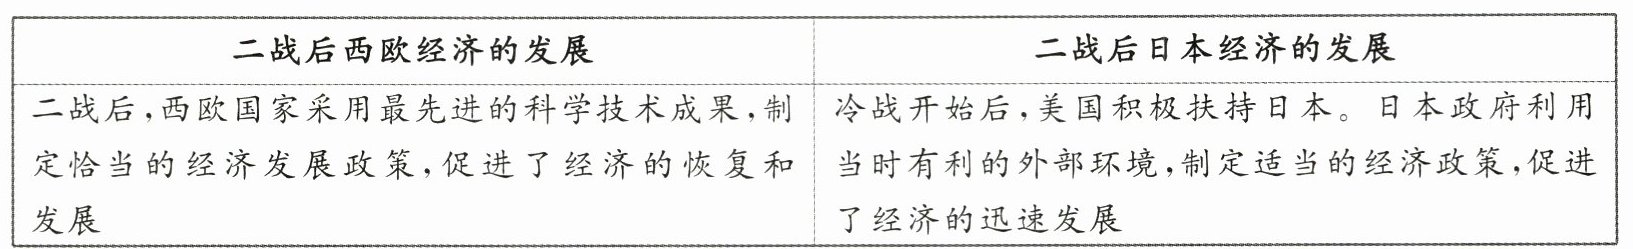 二战后西欧经济的发展
二战后日本经济的发展
二战后,西欧国家采用最先进的科学技术成果,制
定恰当的经济发展政策,促进了经济的恢复和
发展
冷战开始后,美国积极扶持日本。日本政府利用
当时有利的外部环境,制定适当的经济政策,促进
了经济的迅速发展